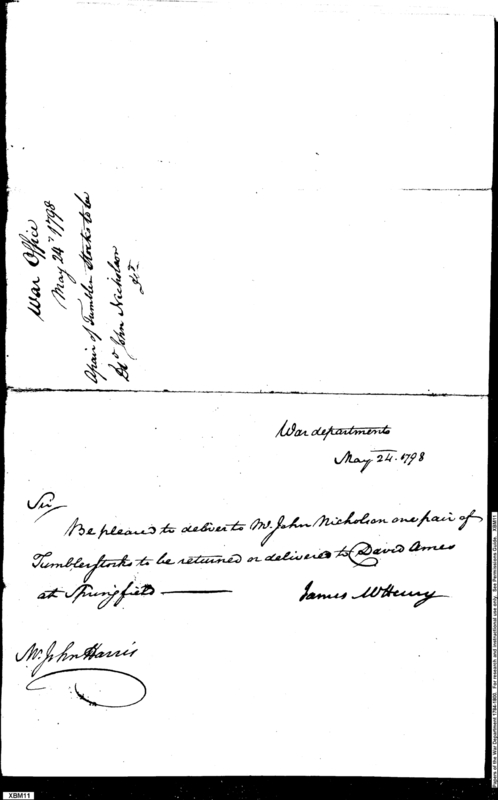 War Office
May 24th 1798
A pair of Tumbler Stocks to be
Dd John Nicholson
War department
May 24. 1798
Sir
Be pleased to deliver to Mr. John Nicholson one pair of
Tumbler stocks to be returned or delivered to David Ames
at Springfield
James McHenry
Mr. John Harris
Papers of the War Department 1784-1800. For research and instructional use only. See Permissions Guide. XBM11
XBM11